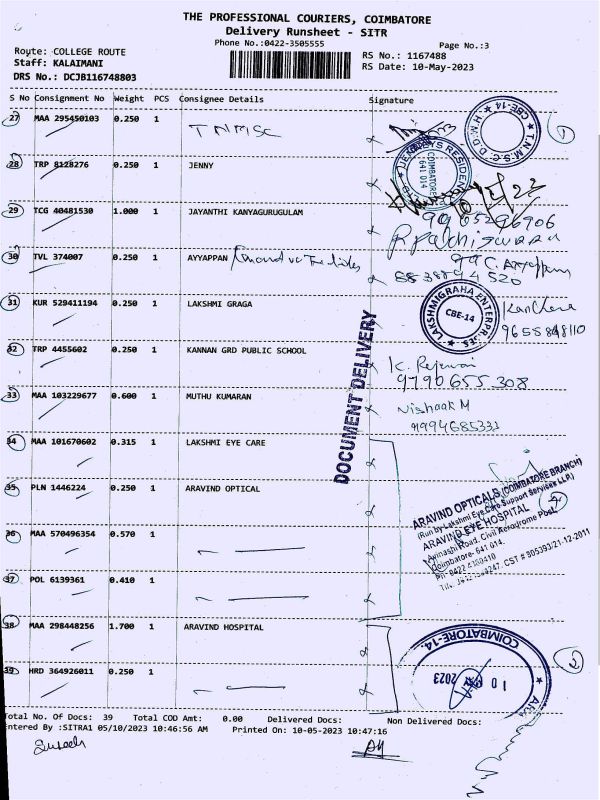 THE PROFESSIONAL COURIERS, COIMBATORE
Delivery Runsheet - SITR
Phone No.:0422-3505555
Page No.:3
Route: COLLEGE ROUTE
RS No.: 1167488
Staff: KALAIMANI
RS Date: 10-May-2023
DRS No.: DCJB116748803
S No Consignment No Weight PCS Consignee Details Signature
27 MAA 295450103 0.250 1 TNMSC
CBE-14 T.N.M.S.C. D.D.H.M.
1
28 TRP 8128276 0.250 1 JENNY
COIMBATORE 641 014
29 TCG 40481530 1.000 1 JAYANTHI KANYAGURUGULAM
30 TVL 374007 0.250 1 AYYAPPAN
C. Ayyappan
31 KUR 529411194 0.250 1 LAKSHMI GRAGA
LAKSHMIGRAHA ENTERPRISES CBE-14
32 TRP 4455602 0.250 1 KANNAN GRD PUBLIC SCHOOL
9790655308
DOCUMENT DELIVERY
33 MAA 103229677 0.600 1 MUTHU KUMARAN
Vishaak M
9994685333
34 MAA 101670602 0.315 1 LAKSHMI EYE CARE
35 PLN 1446224 0.250 1 ARAVIND OPTICAL
ARAVIND OPTICALS (COIMBATORE BRANCH)
(Run by Lakshmi Eye Care Support Services LLP)
ARAVIND EYE HOSPITAL
Avinashi Road, Civil Aerodrome Post,
Coimbatore- 641 014.
36 MAA 570496354 0.570 1
37 POL 6139361 0.410 1
38 MAA 298448256 1.700 1 ARAVIND HOSPITAL
COIMBATORE-14.
2
39 HRD 364926011 0.250 1
10 2023
Total No. Of Docs: 39 Total COD Amt: 0.00 Delivered Docs: Non Delivered Docs:
Entered By :SITRA1 05/10/2023 10:46:56 AM Printed On: 10-05-2023 10:47:16